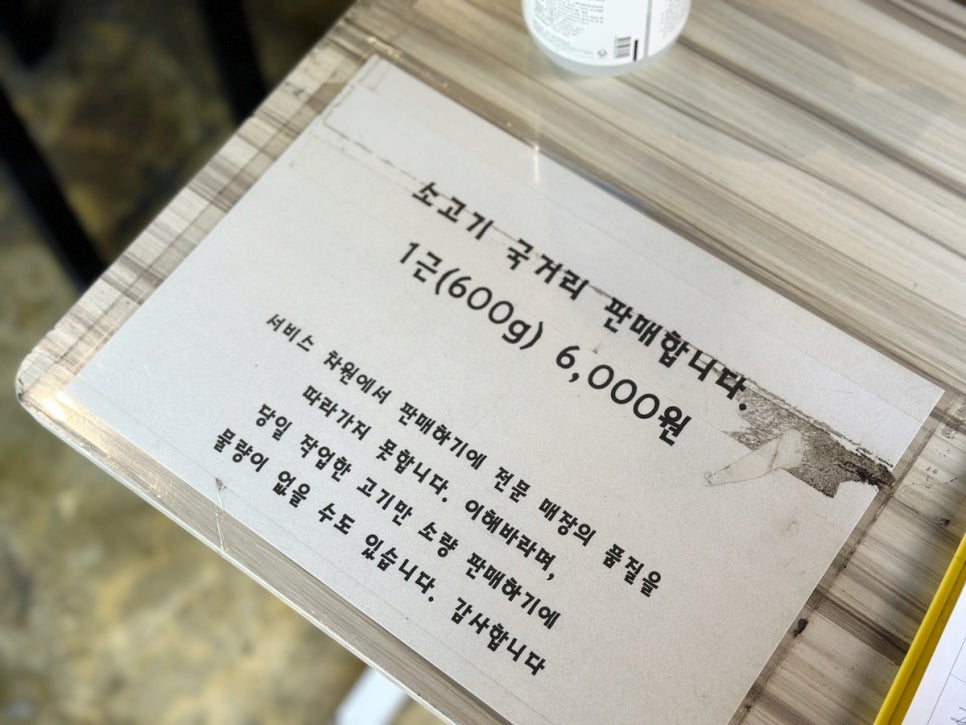 소고기 국거리 판매합니다.
1근(600g) 6,000원
서비스 차원에서 판매하기에 전문 매장의 품질을
따라가지 못합니다. 이해바라며,
당일 작업한 고기만 소량 판매하기에
물량이 없을 수도 있습니다. 감사합니다